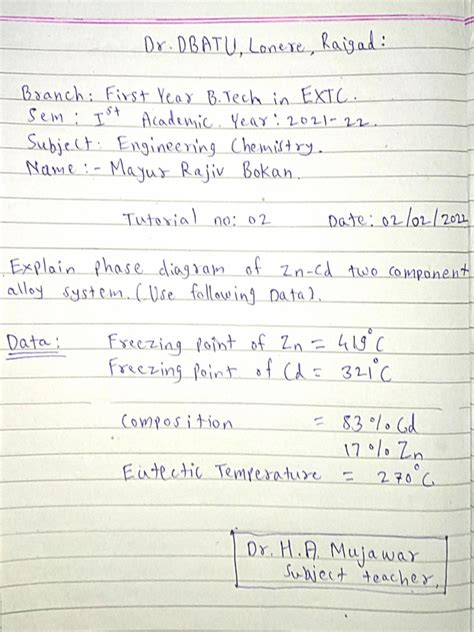 Dr. DBATU, Lonere, Raigad:
Branch: First Year B.Tech in EXTC.
Sem : Ist Academic Year: 2021-22.
Subject: Engineering Chemistry.
Name :- Mayur Rajiv Bokan.
Tutorial no: 02 Date: 02/02/2022
Explain phase diagram of Zn-Cd two component
alloy system. (Use following Data).
Data: Freezing point of Zn = 419°C
Freezing point of Cd = 321°C
Composition = 83% Cd
17% Zn
Eutectic Temperature = 270°C.
Dr. H.A. Mujawar
Subject teacher.